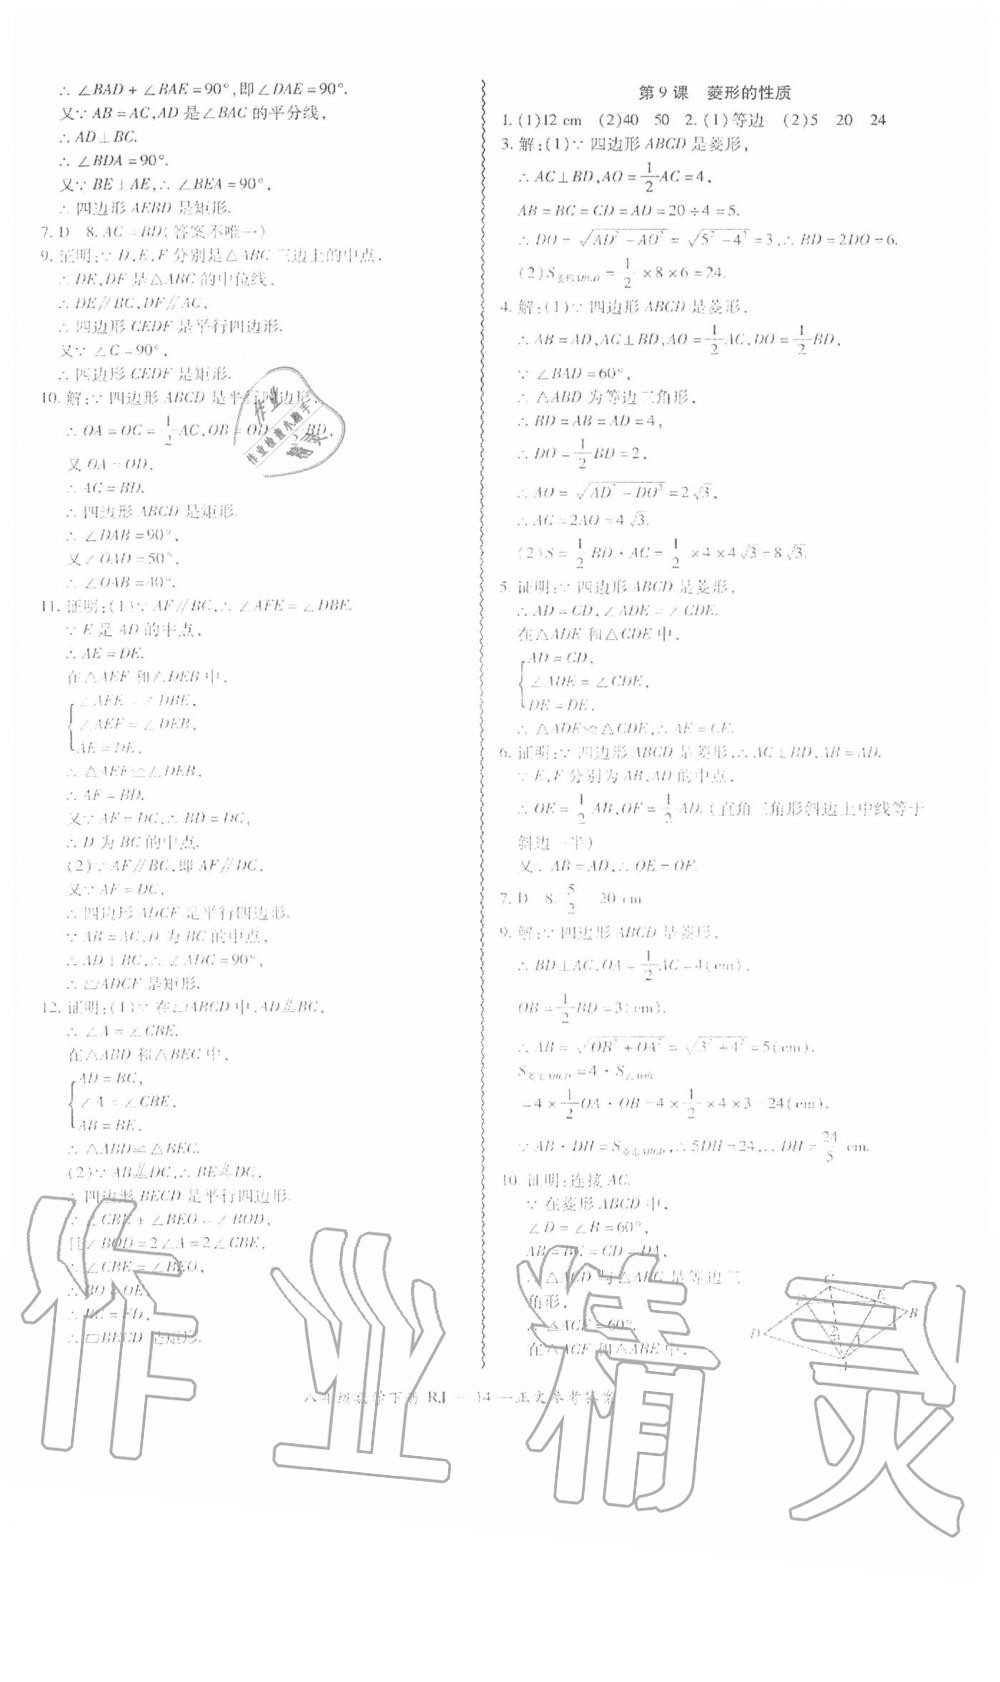 ∴∠BAD+∠BAE=90°,即∠DAE=90°.
又∵AB=AC,AD是∠BAC的平分线,
∴AD⊥BC.
∴∠BDA=90°.
又∵BE⊥AE,∴∠BEA=90°,
∴四边形AEBD是矩形.
7. D 8. AC=BD(答案不唯一)
9. 证明:∵D,E,F分别是△ABC三边上的中点,
∴DE,DF是△ABC的中位线,
∴DE∥BC,DF∥AC,
∴四边形CEDF是平行四边形.
又∵∠C=90°,
∴四边形CEDF是矩形.
10. 解:∵四边形ABCD是平行四边形,
∴OA=OC=1/2AC,OB=OD=1/2BD.
又OA=OD,
∴AC=BD.
∴四边形ABCD是矩形.
∴∠DAB=90°,
又∠OAD=50°,
∴∠OAB=40°.
11. 证明:(1)∵AF∥BC,∴∠AFE=∠DBE.
∵E是AD的中点,
∴AE=DE.
在△AEF和△DEB中,
∠AFE=∠DBE,
∠AEF=∠DEB,
AE=DE,
∴△AEF≌△DEB,
∴AF=BD.
又∵AF=DC,∴BD=DC,
∴D为BC的中点.
(2)∵AF∥BC,即AF∥DC,
又∵AF=DC,
∴四边形ADCF是平行四边形.
∵AB=AC,D为BC的中点,
∴AD⊥BC,∴∠ADC=90°,
∴▱ADCF是矩形.
12. 证明:(1)∵在▱ABCD中,AD⫽BC,
∴∠A=∠CBE.
在△ABD和△BEC中,
AD=BC,
∠A=∠CBE,
AB=BE,
∴△ABD≌△BEC.
(2)∵AB⫽DC,∴BE⫽DC,
∴四边形BECD是平行四边形.
∵∠CBE+∠BEO=∠BOD,
且∠BOD=2∠A=2∠CBE,
∴∠CBE=∠BEO,
∴BO=OE,
∴BC=ED,
∴▱BECD是矩形.
第9课 菱形的性质
1. (1)12 cm (2)40 50 2. (1)等边 (2)5 20 24
3. 解:(1)∵四边形ABCD是菱形,
∴AC⊥BD,AO=1/2AC=4,
AB=BC=CD=AD=20÷4=5.
∴DO=√(AD²−AO²)=√(5²−4²)=3,∴BD=2DO=6.
(2)S菱形ABCD=1/2×8×6=24.
4. 解:(1)∵四边形ABCD是菱形,
∴AB=AD,AC⊥BD,AO=1/2AC,DO=1/2BD,
∵∠BAD=60°,
∴△ABD为等边三角形,
∴BD=AB=AD=4,
∴DO=1/2BD=2,
∴AO=√(AD²−DO²)=2√3,
∴AC=2AO=4√3.
(2)S=1/2BD·AC=1/2×4×4√3=8√3.
5. 证明:∵四边形ABCD是菱形,
∴AD=CD,∠ADE=∠CDE.
在△ADE和△CDE中,
AD=CD,
∠ADE=∠CDE,
DE=DE,
∴△ADE≌△CDE,∴AE=CE.
6. 证明:∵四边形ABCD是菱形,∴AC⊥BD,AB=AD.
∵E,F分别为AB,AD的中点,
∴OE=1/2AB,OF=1/2AD.(直角三角形斜边上中线等于
斜边一半)
又∵AB=AD,∴OE=OF.
7. D 8. 5/2 20 cm
9. 解:∵四边形ABCD是菱形,
∴BD⊥AC,OA=1/2AC=4(cm),
OB=1/2BD=3(cm).
∴AB=√(OB²+OA²)=√(3²+4²)=5(cm).
S菱形ABCD=4·S△AOB
=4×1/2OA·OB=4×1/2×4×3=24(cm).
∵AB·DH=S菱形ABCD,∴5DH=24,∴DH=24/5 cm.
10. 证明:连接AC.
∵在菱形ABCD中,
∠D=∠B=60°,
AB=BC=CD=DA,
∴△ACD与△ABC是等边三
角形,
∴∠ACF=60°.
在△ACF和△ABE中,
C
F
E
D
B
A
八年级数学下册 RJ — 14 —正文参考答案
作业
作业检查小助手
精灵
作业精灵